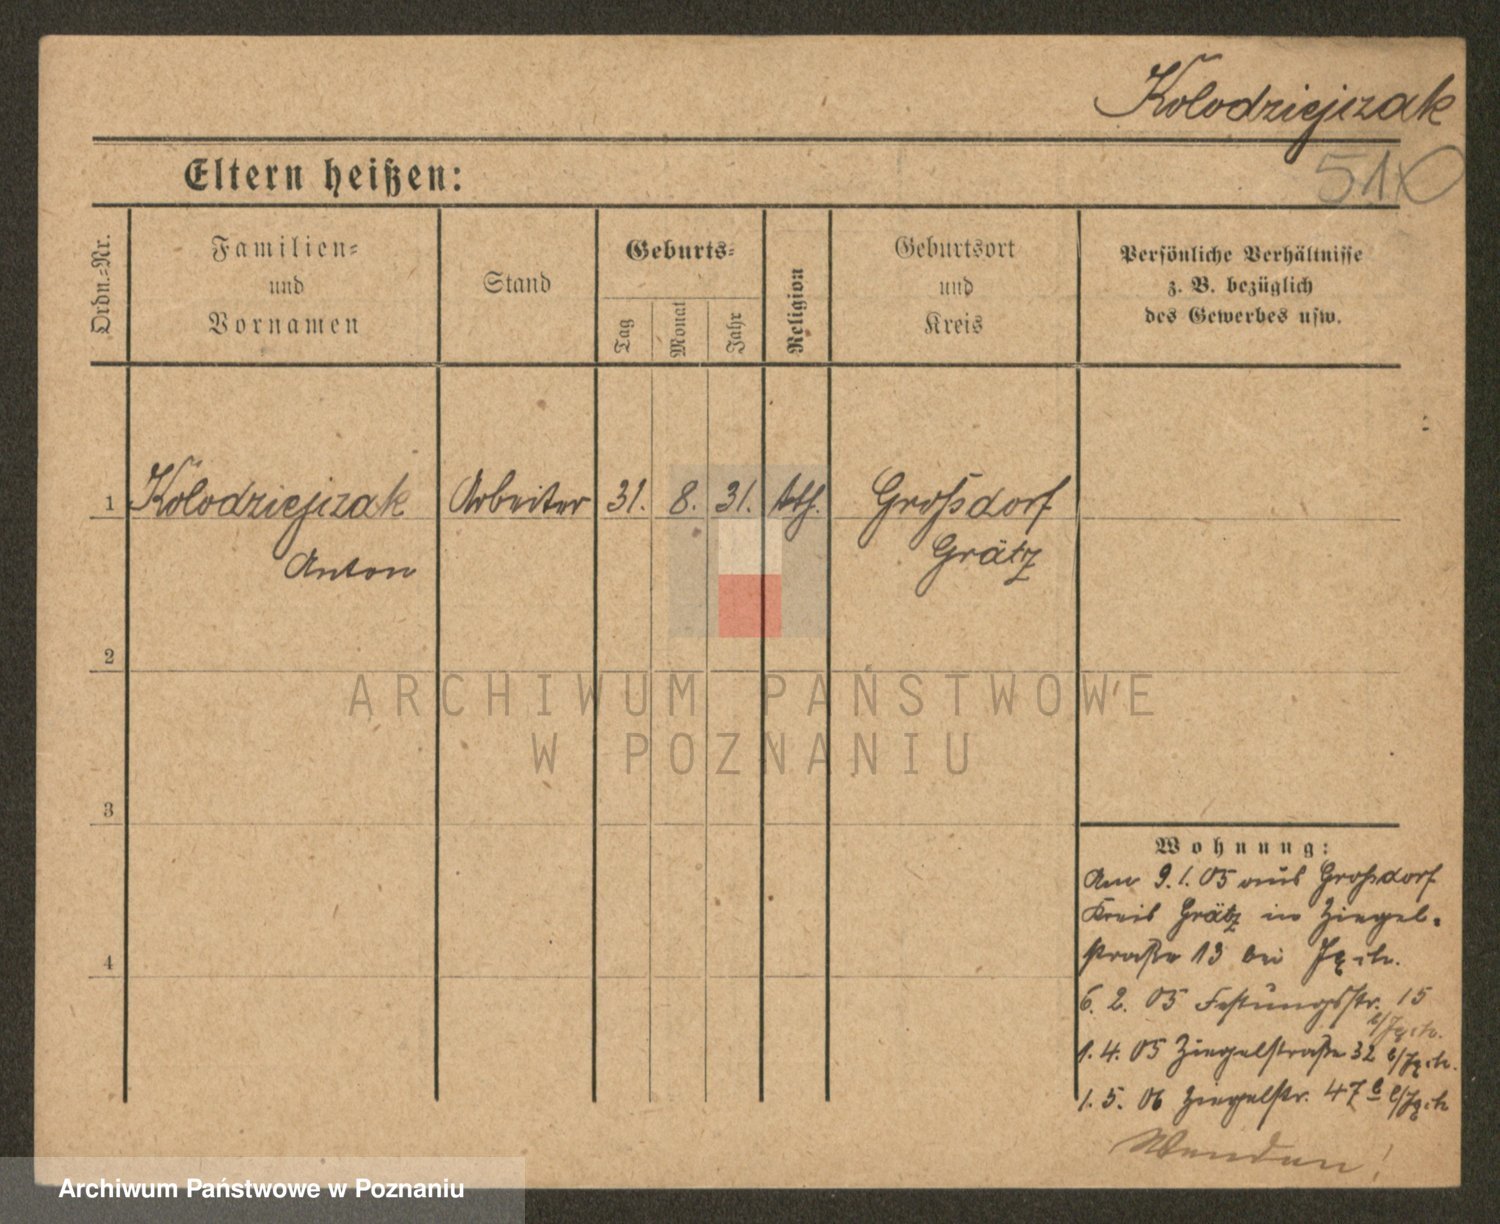 Kolodziejczak
51
Eltern heißen:
Ordn.-Nr.
Familien-
und
Vornamen
Stand
Geburts-
Tag
Monat
Jahr
Religion
Geburtsort
und
Kreis
Persönliche Verhältnisse
z. B. bezüglich
des Gewerbes usw.
1 Kolodziejczak Arbeiter 31. 8. 31. kth. Großdorf
Anton Grätz
2
3
4
Wohnung:
Am 9.1.05 aus Großdorf
Kreis Grätz in Ziegel-
straße 13 bei
6. 2. 05 Festungsstr. 15
1. 4. 05 Ziegelstraße 32
1. 5. 06 Ziegelstr. 47
Wenden!
ARCHIWUM PAŃSTWOWE
W POZNANIU
Archiwum Państwowe w Poznaniu